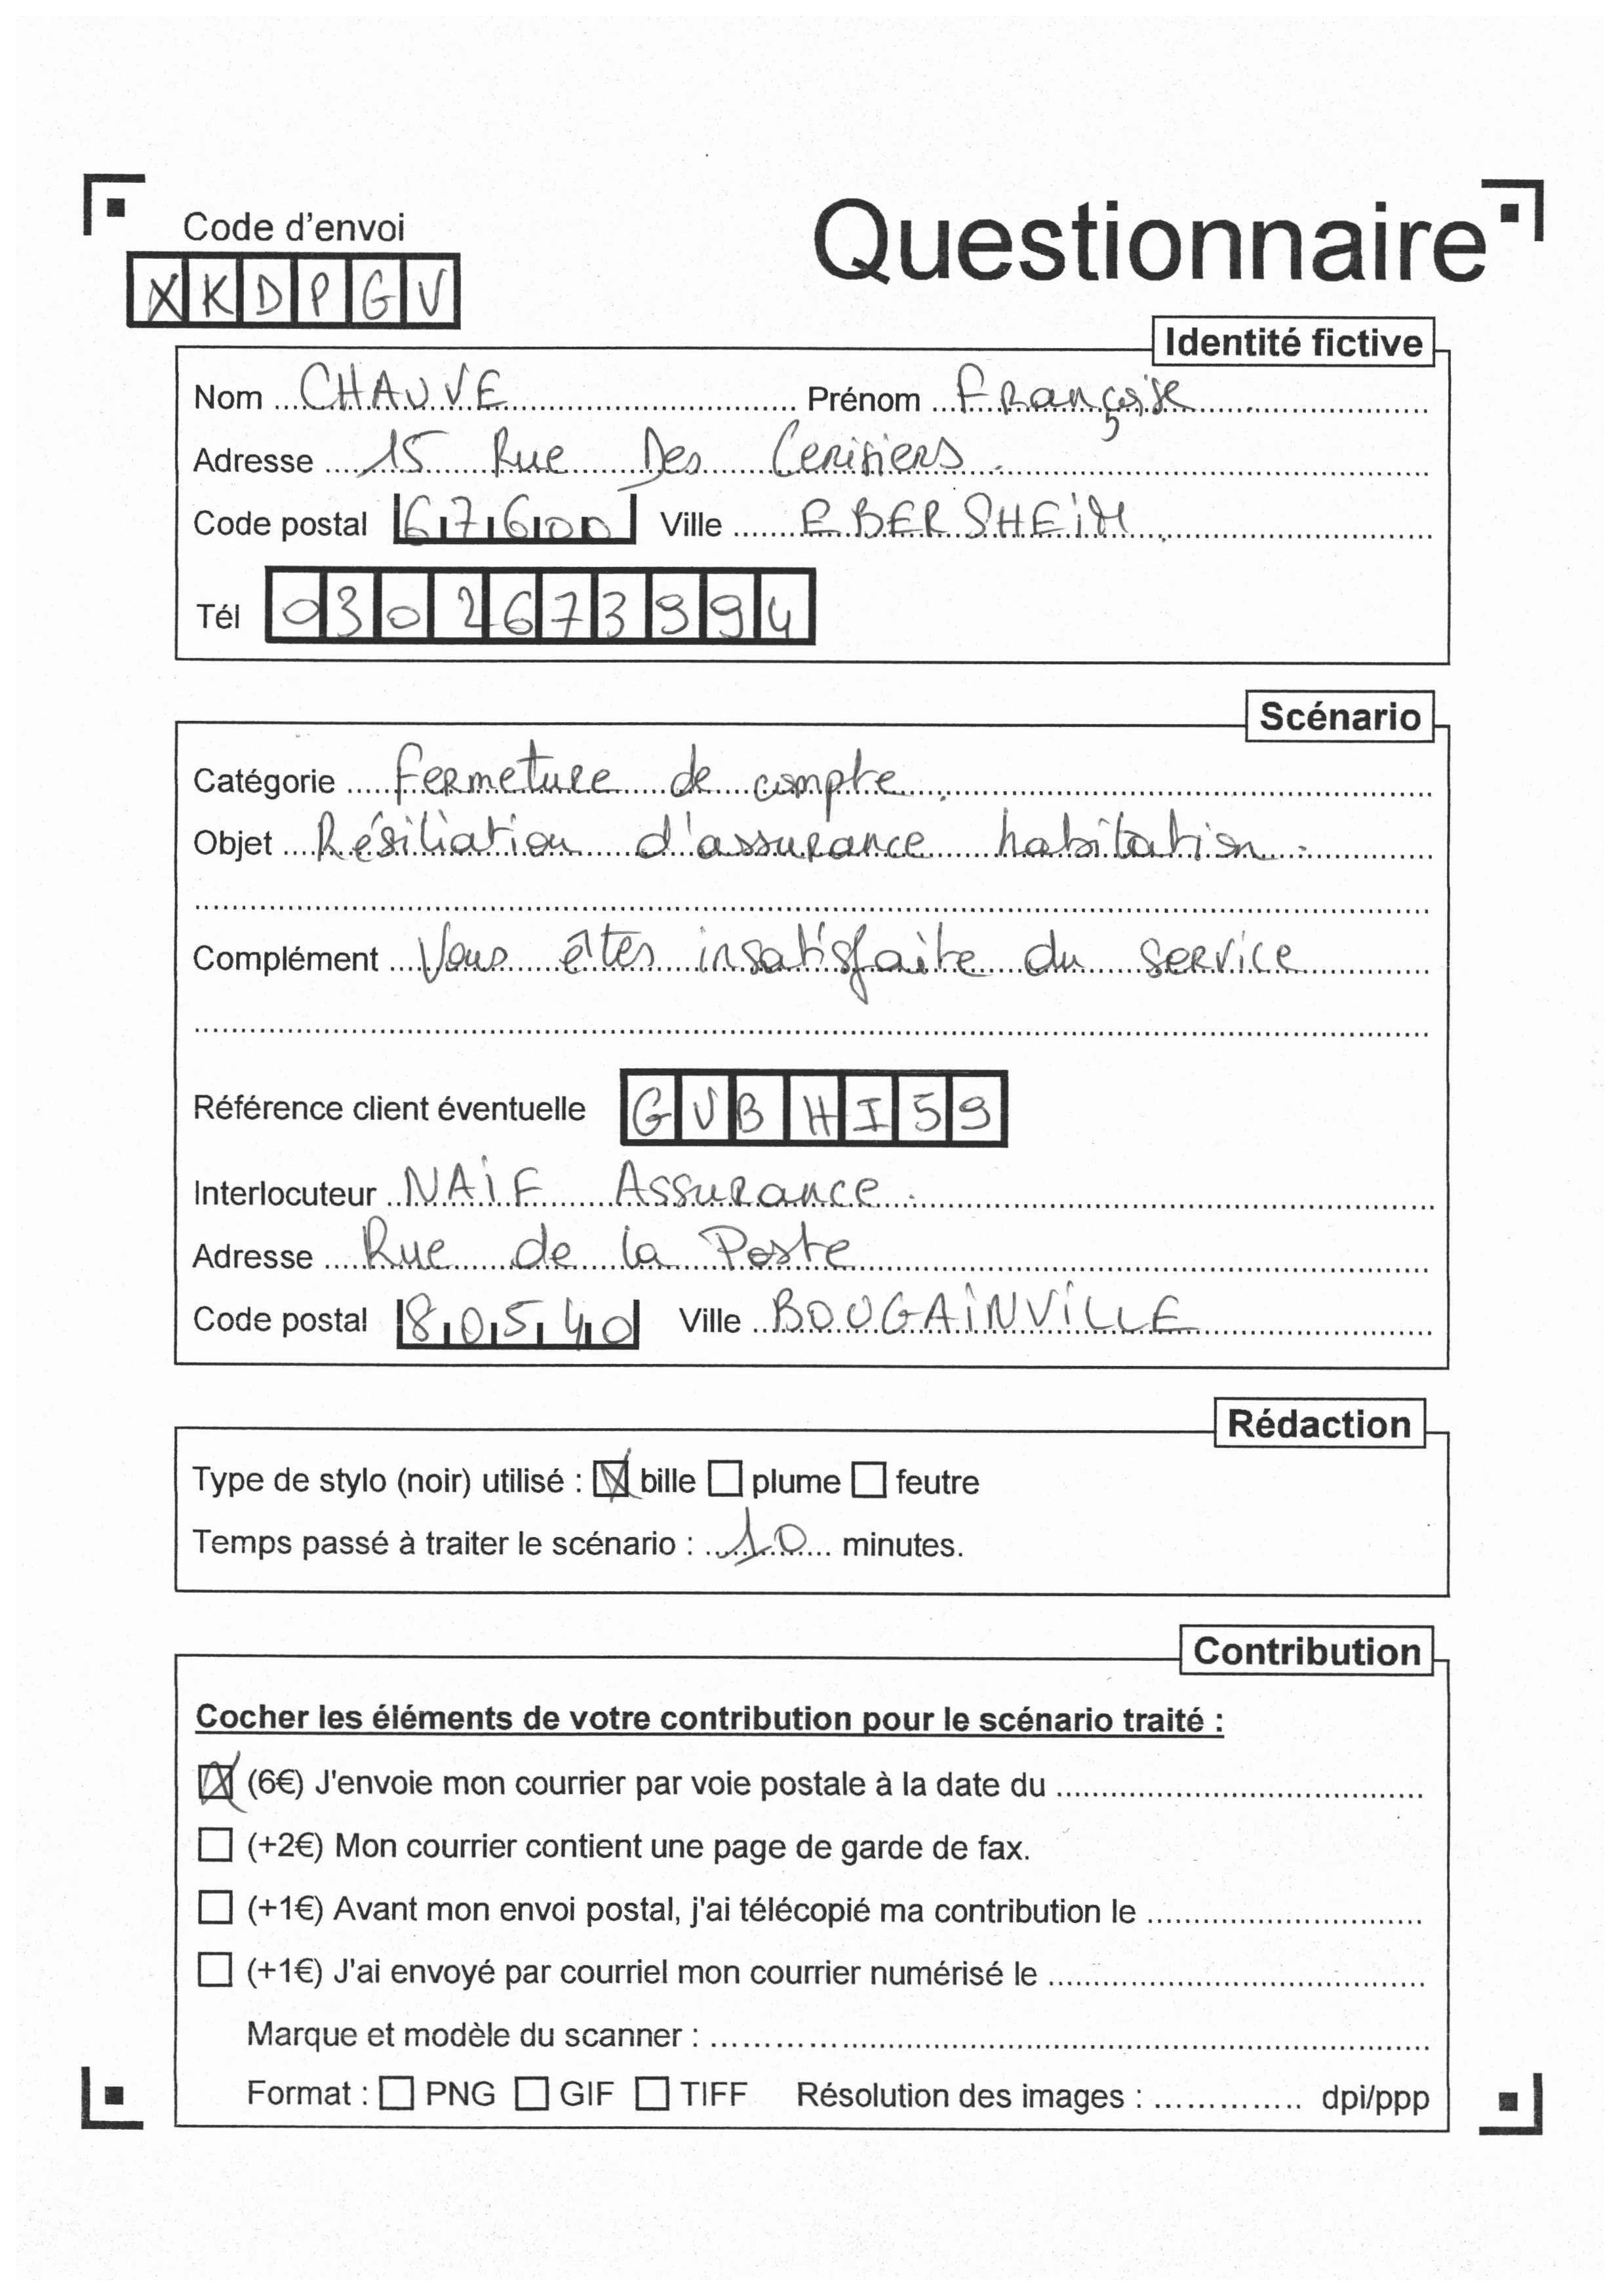 Code d'envoi
Questionnaire
XKDPGV
Identité fictive
Nom CHAUVE Prénom Françoise
Adresse 15 Rue Des Cerisiers.
Code postal 67600 Ville EBERSHEIM
Tél 0302673994
Scénario
Catégorie Fermeture de compte.
Objet Résiliation d'assurance habitation.
Complément Vous êtes insatisfaite du service
Référence client éventuelle GVBHI59
Interlocuteur NAIF Assurance.
Adresse Rue de la Poste
Code postal 80540 Ville BOUGAINVILLE
Rédaction
Type de stylo (noir) utilisé : bille plume feutre
Temps passé à traiter le scénario : 10 minutes.
Contribution
Cocher les éléments de votre contribution pour le scénario traité :
(6€) J'envoie mon courrier par voie postale à la date du
(+2€) Mon courrier contient une page de garde de fax.
(+1€) Avant mon envoi postal, j'ai télécopié ma contribution le
(+1€) J'ai envoyé par courriel mon courrier numérisé le
Marque et modèle du scanner :
Format : PNG GIF TIFF Résolution des images : dpi/ppp